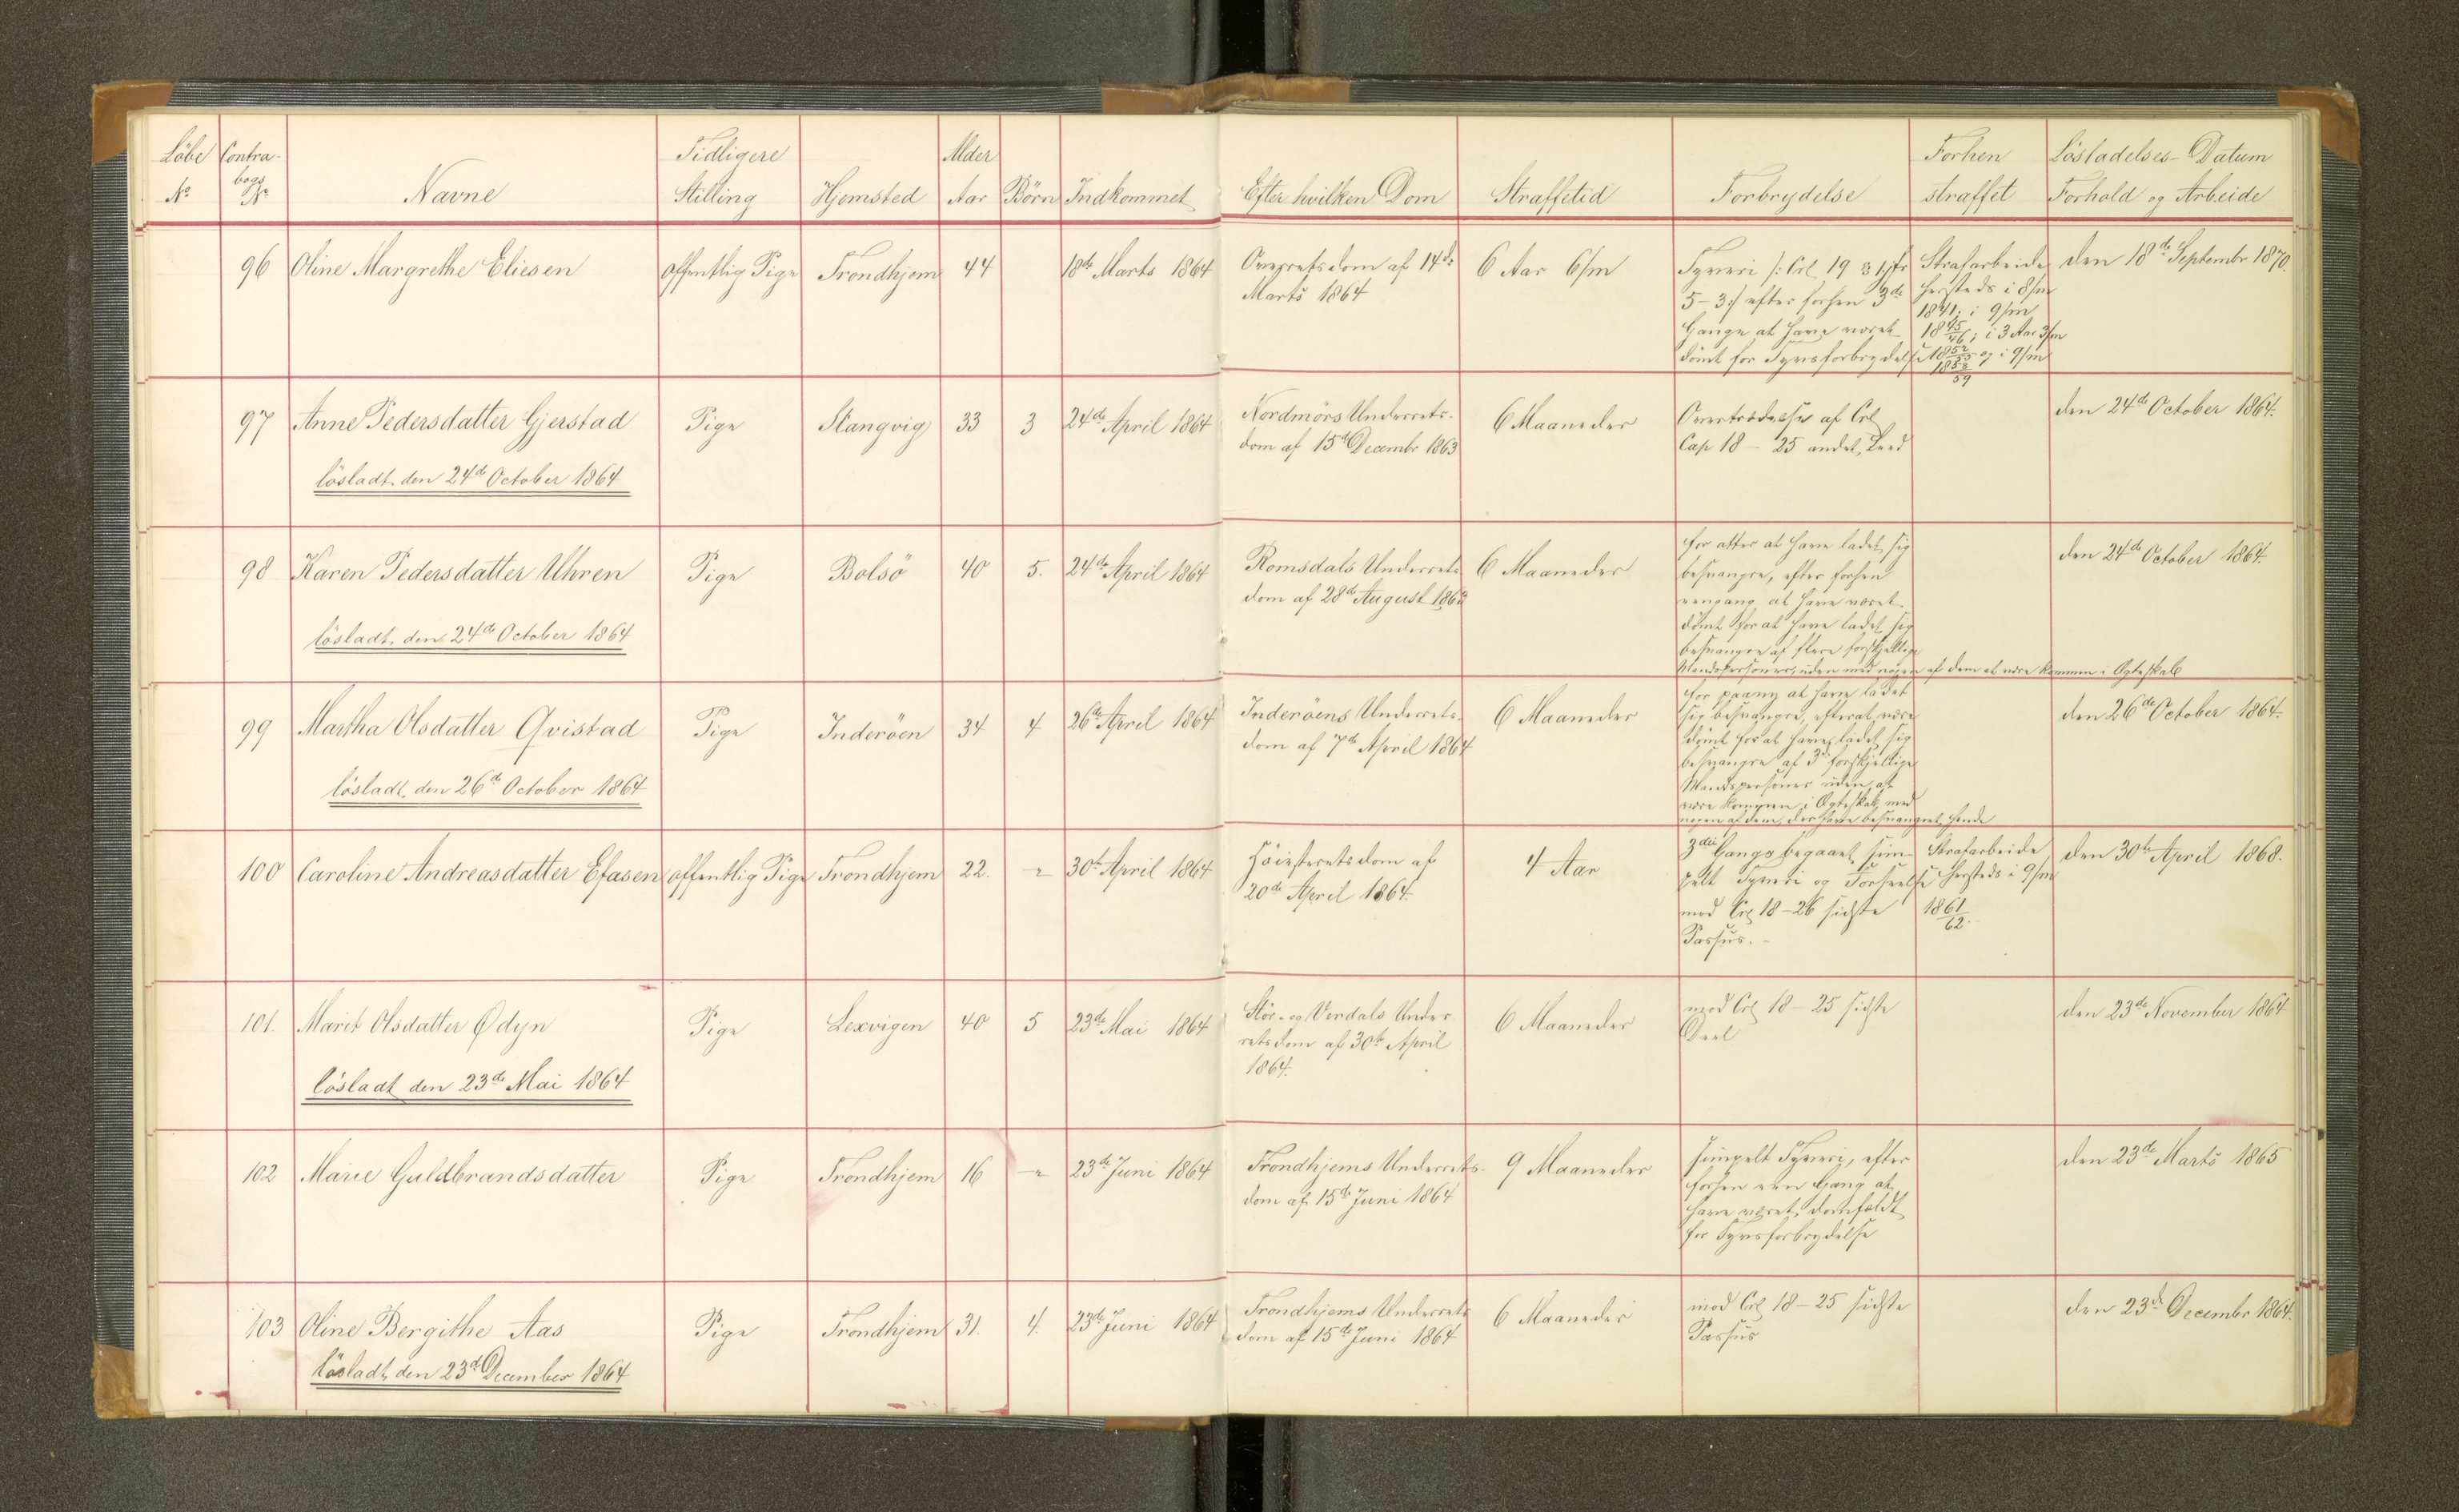 Löbe No
Contra-bogs No
Navne
Tidligere Stilling
Hjemsted
Alder Aar
Börn
Indkommet
Efter hvilken Dom
Straffetid
Forbrydelse
Forhen straffet
Lösladelses-Datum Forhold og Arbeide
96 Oline Margrethe Eliesen offentlig Pige Trondhjem 44 18de Marts 1864
Overretsdom af 14de
Marts 1864
6 Aar 6/m
Tyveri /: Crl 19
5-3:/ efter forhen 3de
Gange at have været
dömt for Tyvsforbrydelse
Strafarbeide
hersteds i 8/m
1841; i 9/m
1845/46; i 3 Aar 3/m
1852/55 og i 9/m
1858/59
den 18de Septembr 1870.
97 Anne Pedersdatter Gjerstad Pige Stangvig 33 3 24de April 1864
lösladt den 24de October 1864
Nordmörs Underrets-
dom af 15de Decembr 1863
6 Maaneder
Overtrædelse af Crl
Cap 18 - 25 andet Leed
den 24de October 1864.
98 Karen Pedersdatter Uhren Pige Bolsö 40 5. 24de April 1864
lösladt den 24de October 1864
Romsdals Underrets
dom af 28de August 1863
6 Maaneder
for atter at have ladet sig
besvangre, efter forhen
eengang at have været
dömt for at have ladet sig
besvangre af flere forskjellige
Mandspersoner, uden med nogen af dem at være kommen i Ægteskab
den 24de October 1864.
99 Martha Olsdatter Qvistad Pige Inderöen 34 4 26de April 1864
lösladt den 26de October 1864
Inderöens Underrets-
dom af 7de April 1864
6 Maaneder
for paany at have ladet
sig besvangre, efterat være
dömt for at have ladet sig
besvangre af 3de forskjellige
Mandspersoner uden at
være kommen i Ægteskab med
nogen af dem, der havde besvangret hende
den 26de October 1864.
100 Caroline Andreasdatter Efasen offentlig Pige Trondhjem 22. " 30te April 1864
Höiesteretsdom af
20de April 1864.
4 Aar
3die Gangs begaaet sim-
pelt Tyveri og Forseelse
mod Crl 18-26 sidste
Passus.
Strafarbeide
hersteds i 9/m
1861/62.
den 30te April 1868.
101. Marit Olsdatter Ødyn Pige Lexvigen 40 5 23de Mai 1864
lösladt den 23de Mai 1864
Stör- og Verdals Under
retsdom af 30te April
1864.
6 Maaneder
mod Crl 18-25 sidste
Deel
den 23de November 1864
102 Marie Guldbrandsdatter Pige Trondhjem 16 " 23de Juni 1864
Trondhjems Underrets-
dom af 15de Juni 1864
9 Maaneder
simpelt Tyveri, efter
forhen een Gang at
have været domfældt
for Tyvsforbrydelse
den 23de Marts 1865
103 Oline Bergithe Aas Pige Trondhjem 31. 4. 23de Juni 1864
lösladt den 23de December 1864
Trondhjems Underrets
dom af 15de Juni 1864
6 Maaneder
mod Crl 18-25 sidste
Passus
den 23de Decembr 1864.